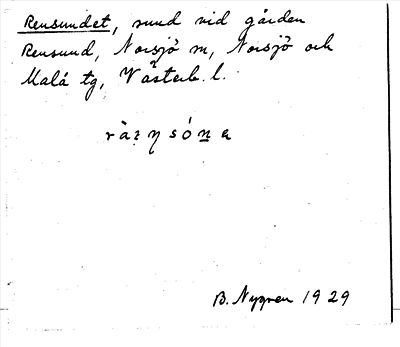 Rensundet, sund vid gården
Rensund, Norsjö m, Norsjö och
Malå tg, Västerb. l.
B. Nygren 1929